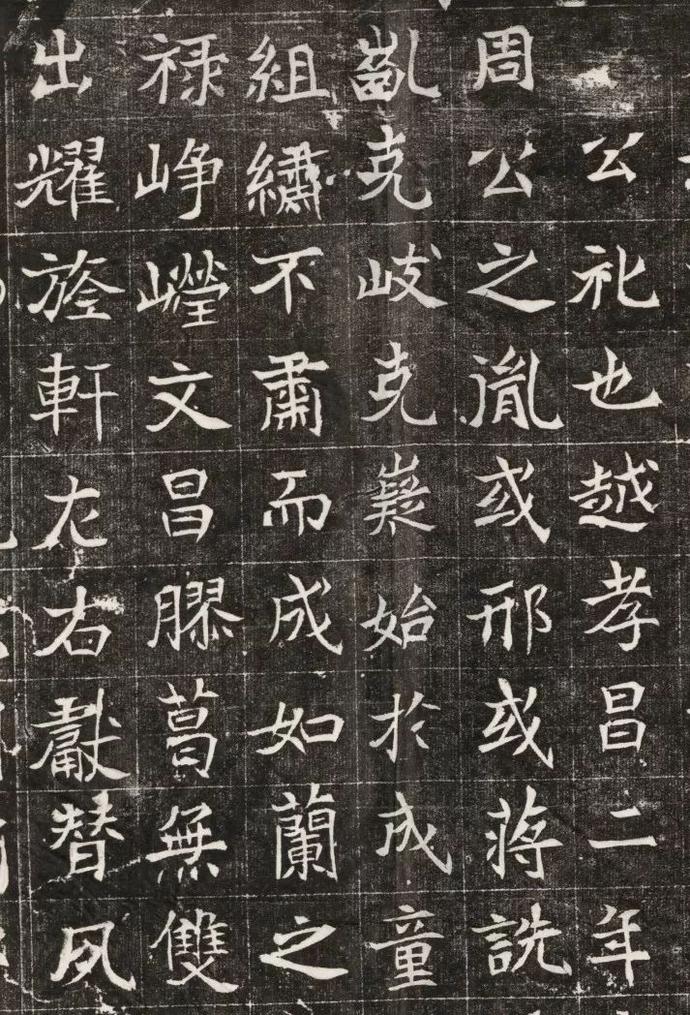 公礼也越孝昌二年
周公之胤或邢或蒋詵
齓克岐克嶷始於成童
組繡不肅而成如蘭之
禄崢嶸文昌膠葛無雙
出耀旍軒左右獻替夙